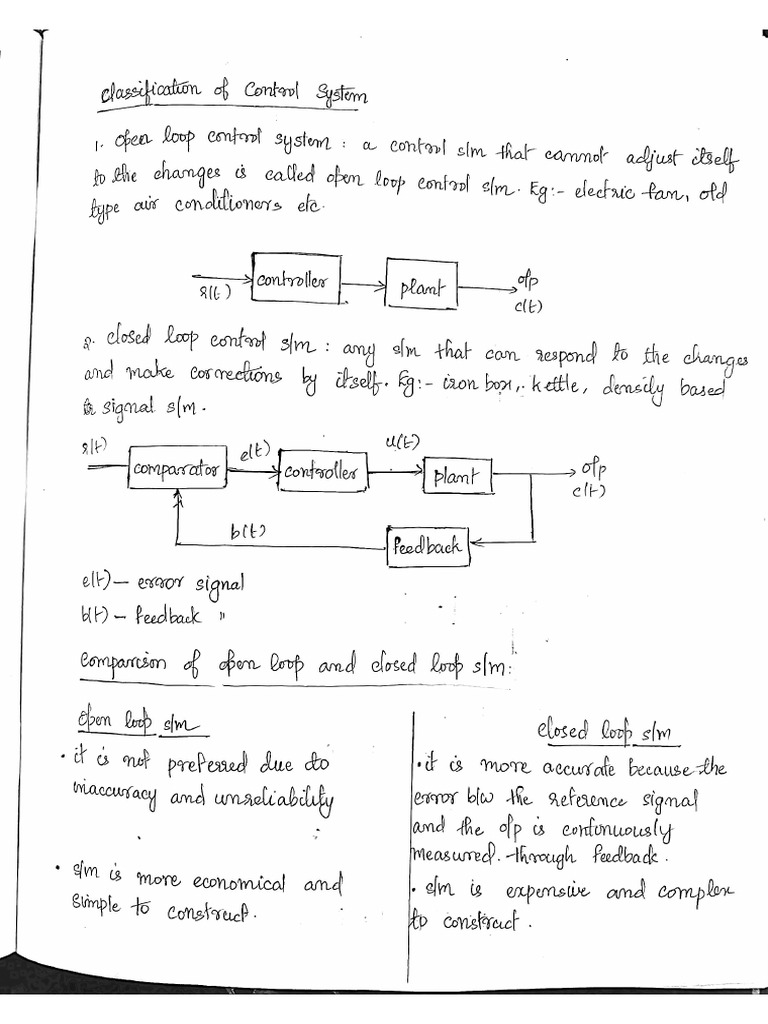 Classification of Control System
1. Open loop control system : a control s/m that cannot adjust itself
to the changes is called open loop control s/m. Eg:- electric fan, old
type air conditioners etc.
r(t)
controller
plant
o/p
c(t)
2. closed loop control s/m : any s/m that can respond to the changes
and make corrections by itself. Eg:- iron box, kettle, density based
signal s/m.
r(t)
comparator
e(t)
controller
u(t)
plant
o/p
c(t)
b(t)
feedback
e(t) – error signal
b(t) – feedback "
Comparison of open loop and closed loop s/m:
Open loop s/m
• it is not preferred due to
inaccuracy and unreliability
• s/m is more economical and
simple to construct.
closed loop s/m
• it is more accurate because the
error b/w the reference signal
and the o/p is continuously
measured through feedback.
• s/m is expensive and complex
to construct.